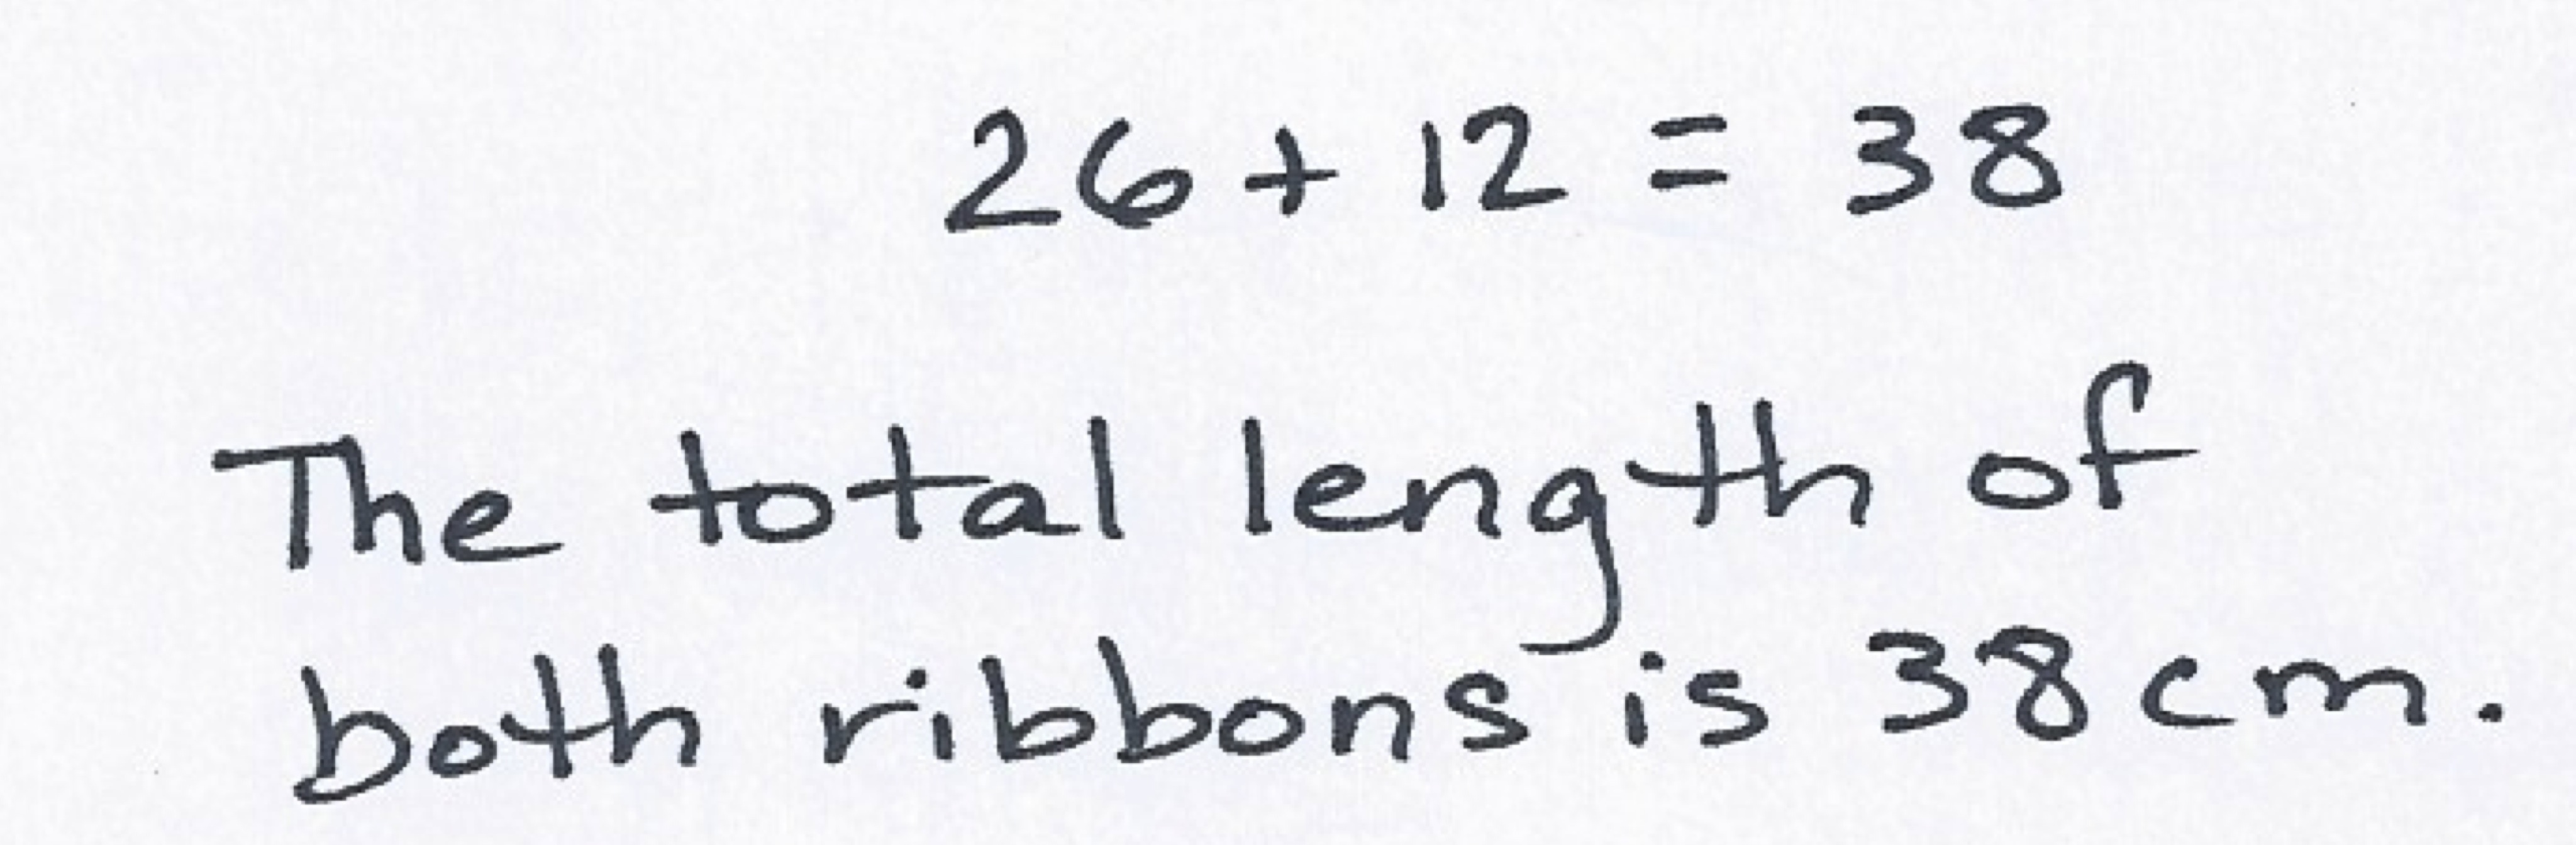 26 + 12 = 38
The total length of
both ribbons is 38 cm.